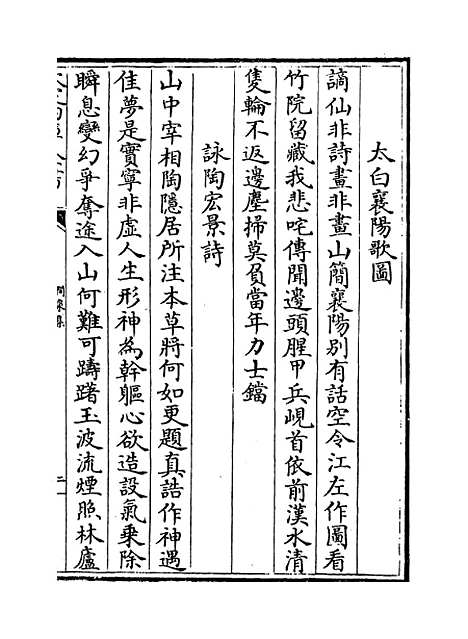 太白襄陽歌圖
謫仙非詩畫非畫山簡襄陽别有話空令江左作圖看
竹院留藏我悲咤傳聞邊頭腥甲兵峴首依前漢水清
隻輪不返邊塵掃莫負當年力士鐺
詠陶宏景詩
山中宰相陶隱居所注本草將何如更題真誥作神遇
佳夢是實寧非虛人生形神為幹軀心欲造設氣乗除
瞬息變幻爭奪途入山何難可躊躇玉波流煙照林廬